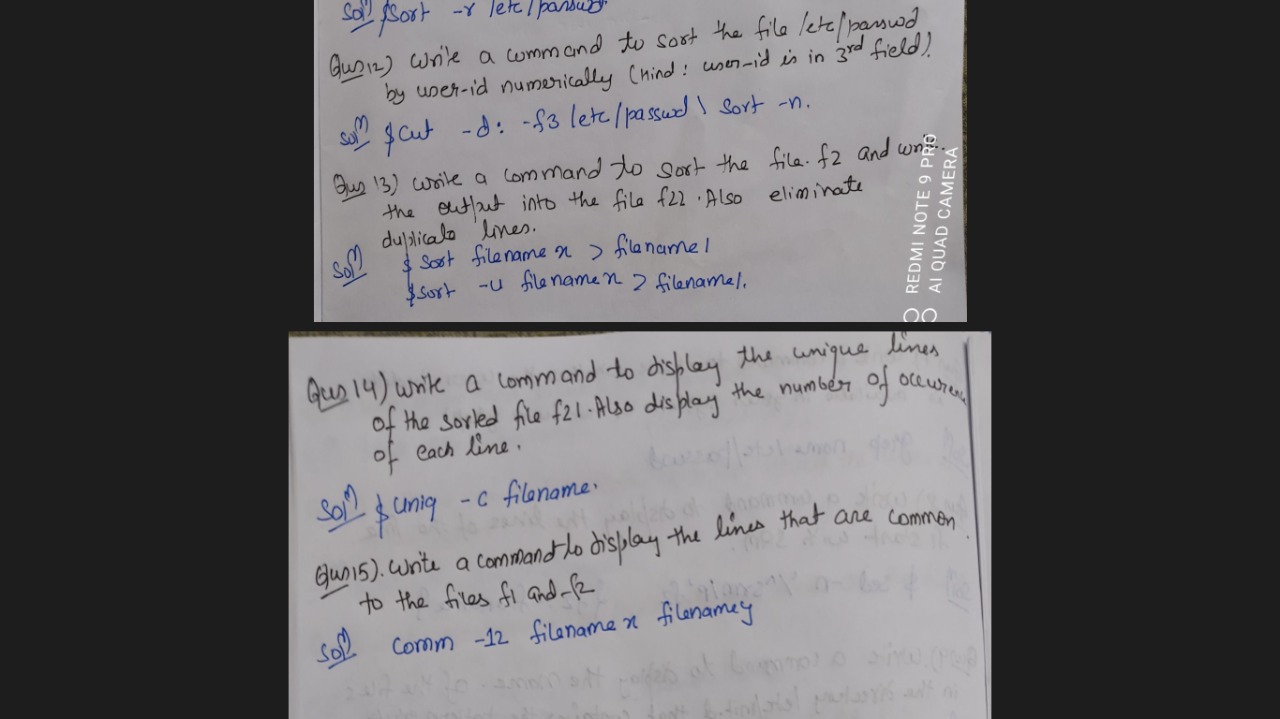 Solⁿ $sort -r /etc/passwd.
Ques12) write a command to sort the file /etc/passwd
by user-id numerically (Hind: user-id is in 3rd field).
Solⁿ $cut -d: -f3 /etc/passwd \ sort -n.
Ques 13) write a command to sort the file. f2 and write
the output into the file f22. Also eliminate
duplicate lines.
Solⁿ $ sort filename x > filename1
$sort -u filename x > filename1.
REDMI NOTE 9 PRO
AI QUAD CAMERA
Ques 14) write a command to display the unique lines
of the sorted file f21. Also display the number of occurenc
of each line.
Solⁿ $ uniq -c filename.
Ques15). Write a command to display the lines that are common
to the files f1 and f2
Solⁿ comm -12 filename x filenamey